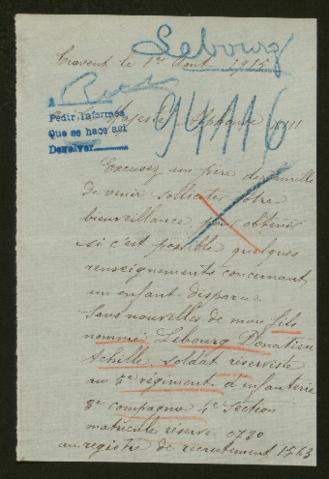 Lebourg
Tiavent le 1er Aout 1915
94116
A
Pedir informes
Que se hace así
Devolver
Majesté Alphonse XIII
Excusez un père de famille
de venir solliciter votre
bienveillance pour obtenir
si c'est possible quelques
renseignements concernant
un enfant disparu
Sans nouvelles de mon fils
nommé Lebourg Donatien
Achille soldat réserviste
au 5e régiment d'infanterie
8e compagnie 4e Section
matricule réserve 0730
au registre de recrutement 1563